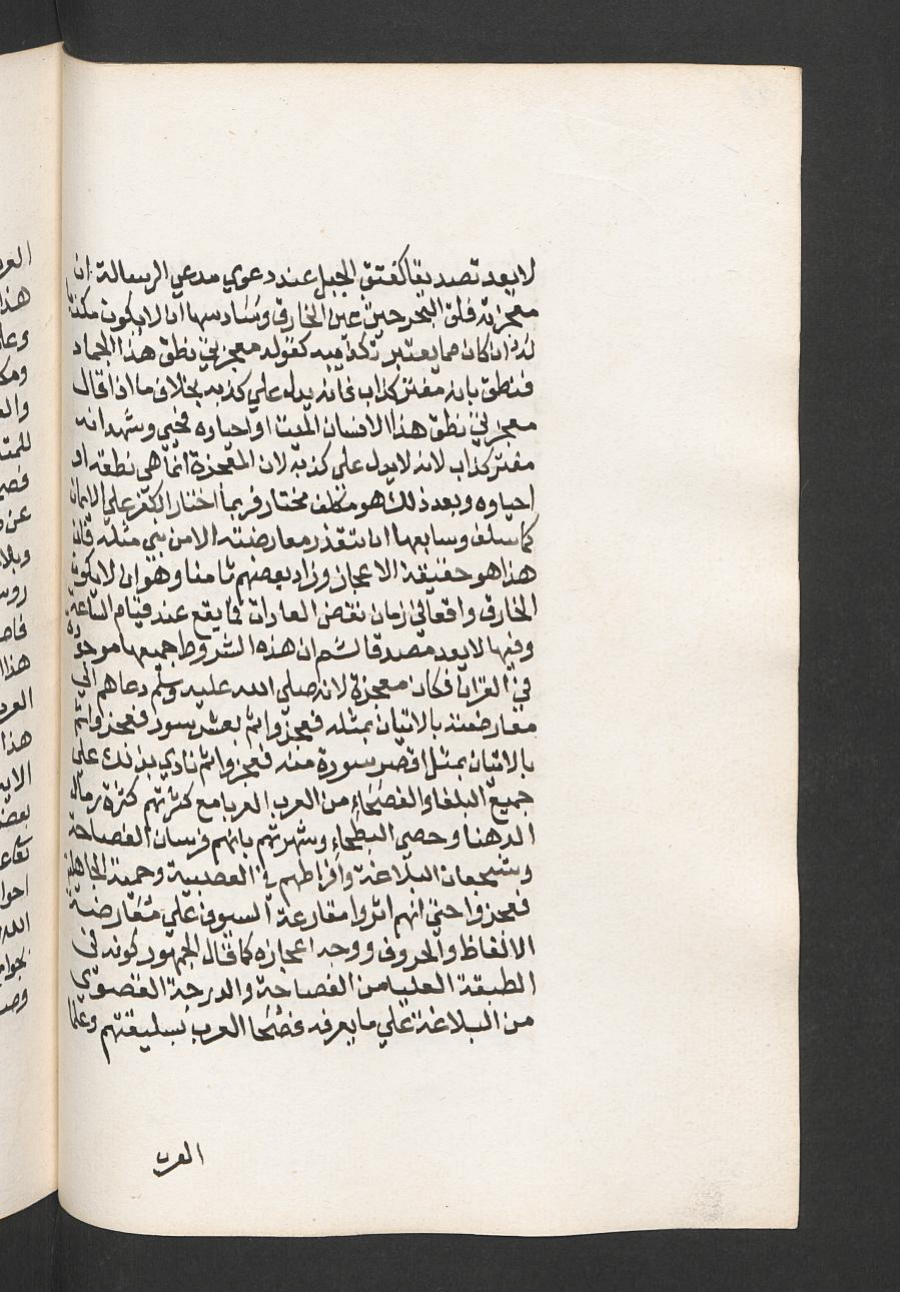 لا يعد تصديقا كفتق الجبل عند دعوي مدعي الرسالة ان
معجزته فلق البحر حين عين الخارق وسادسها ان لا يكون مكذبا
له ان كان مما يعتبر تكذيبه كقوله معجزتي نطق هذا الجماد
فنطق بانه مفتر كذاب فانه يدل علي كذبه بخلاف ما اذا قال
معجزتي نطق هذا الانسان الميت او احياوه فحيي وشهد انه
مفتر كذاب لانه لا يدل علي كذبه لان المعجزة انما هي نطقه او
احياوه وبعد ذلك هو مكلف مختار فربما اختار الكفر علي الايمان
كما سلف وسابعها ان تتعذر معارضته الا من نبي مثله فان
هذا هو حقيقة الاعجاز وزاد بعضهم ثامنا وهو ان لا يكون
الخارق واقعا في زمان نقض العادات فما يقع عند قيام الساعة
وفيها لا يعد مصدقا ثم ان هذه الشروط جميعها موجودة
في القران فكان معجزة لانه صلي الله عليه وسلم دعاهم الي
معارضته بالاتيان بمثله فعجزوا ثم بعشر سور فعجزوا ثم
بالاتيان بمثل اقصر سورة منه فعجزوا ثم نادي بذلك علي
جميع البلغا والفصحاء من العرب العربا مع كثرتهم كثرة رمال
الدهنا وحصي البطحاء وشهرتهم بانهم فرسان الفصاحة
وشجعان البلاغة وافراطهم في العصبية وحمية الجاهلية
فعجزوا حتي انهم اثروا مقارعة السيوف علي معارضة
الالفاظ والحروف ووجه اعجازه كما قال الجمهور كونه في
الطبقة العليا من الفصاحة والدرجة القصوي
من البلاغة علي ما يعرفه فصحا العرب بسليقتهم وعلما
العرب